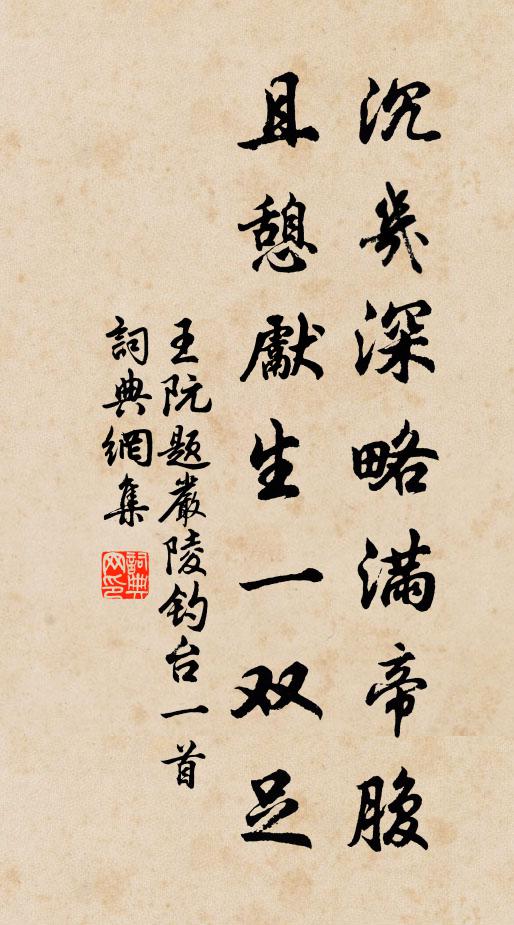 沉几深略满帝腹
且憩獻生一双足
王阮题嚴陵钓台一首
詞典網集
詞典网印